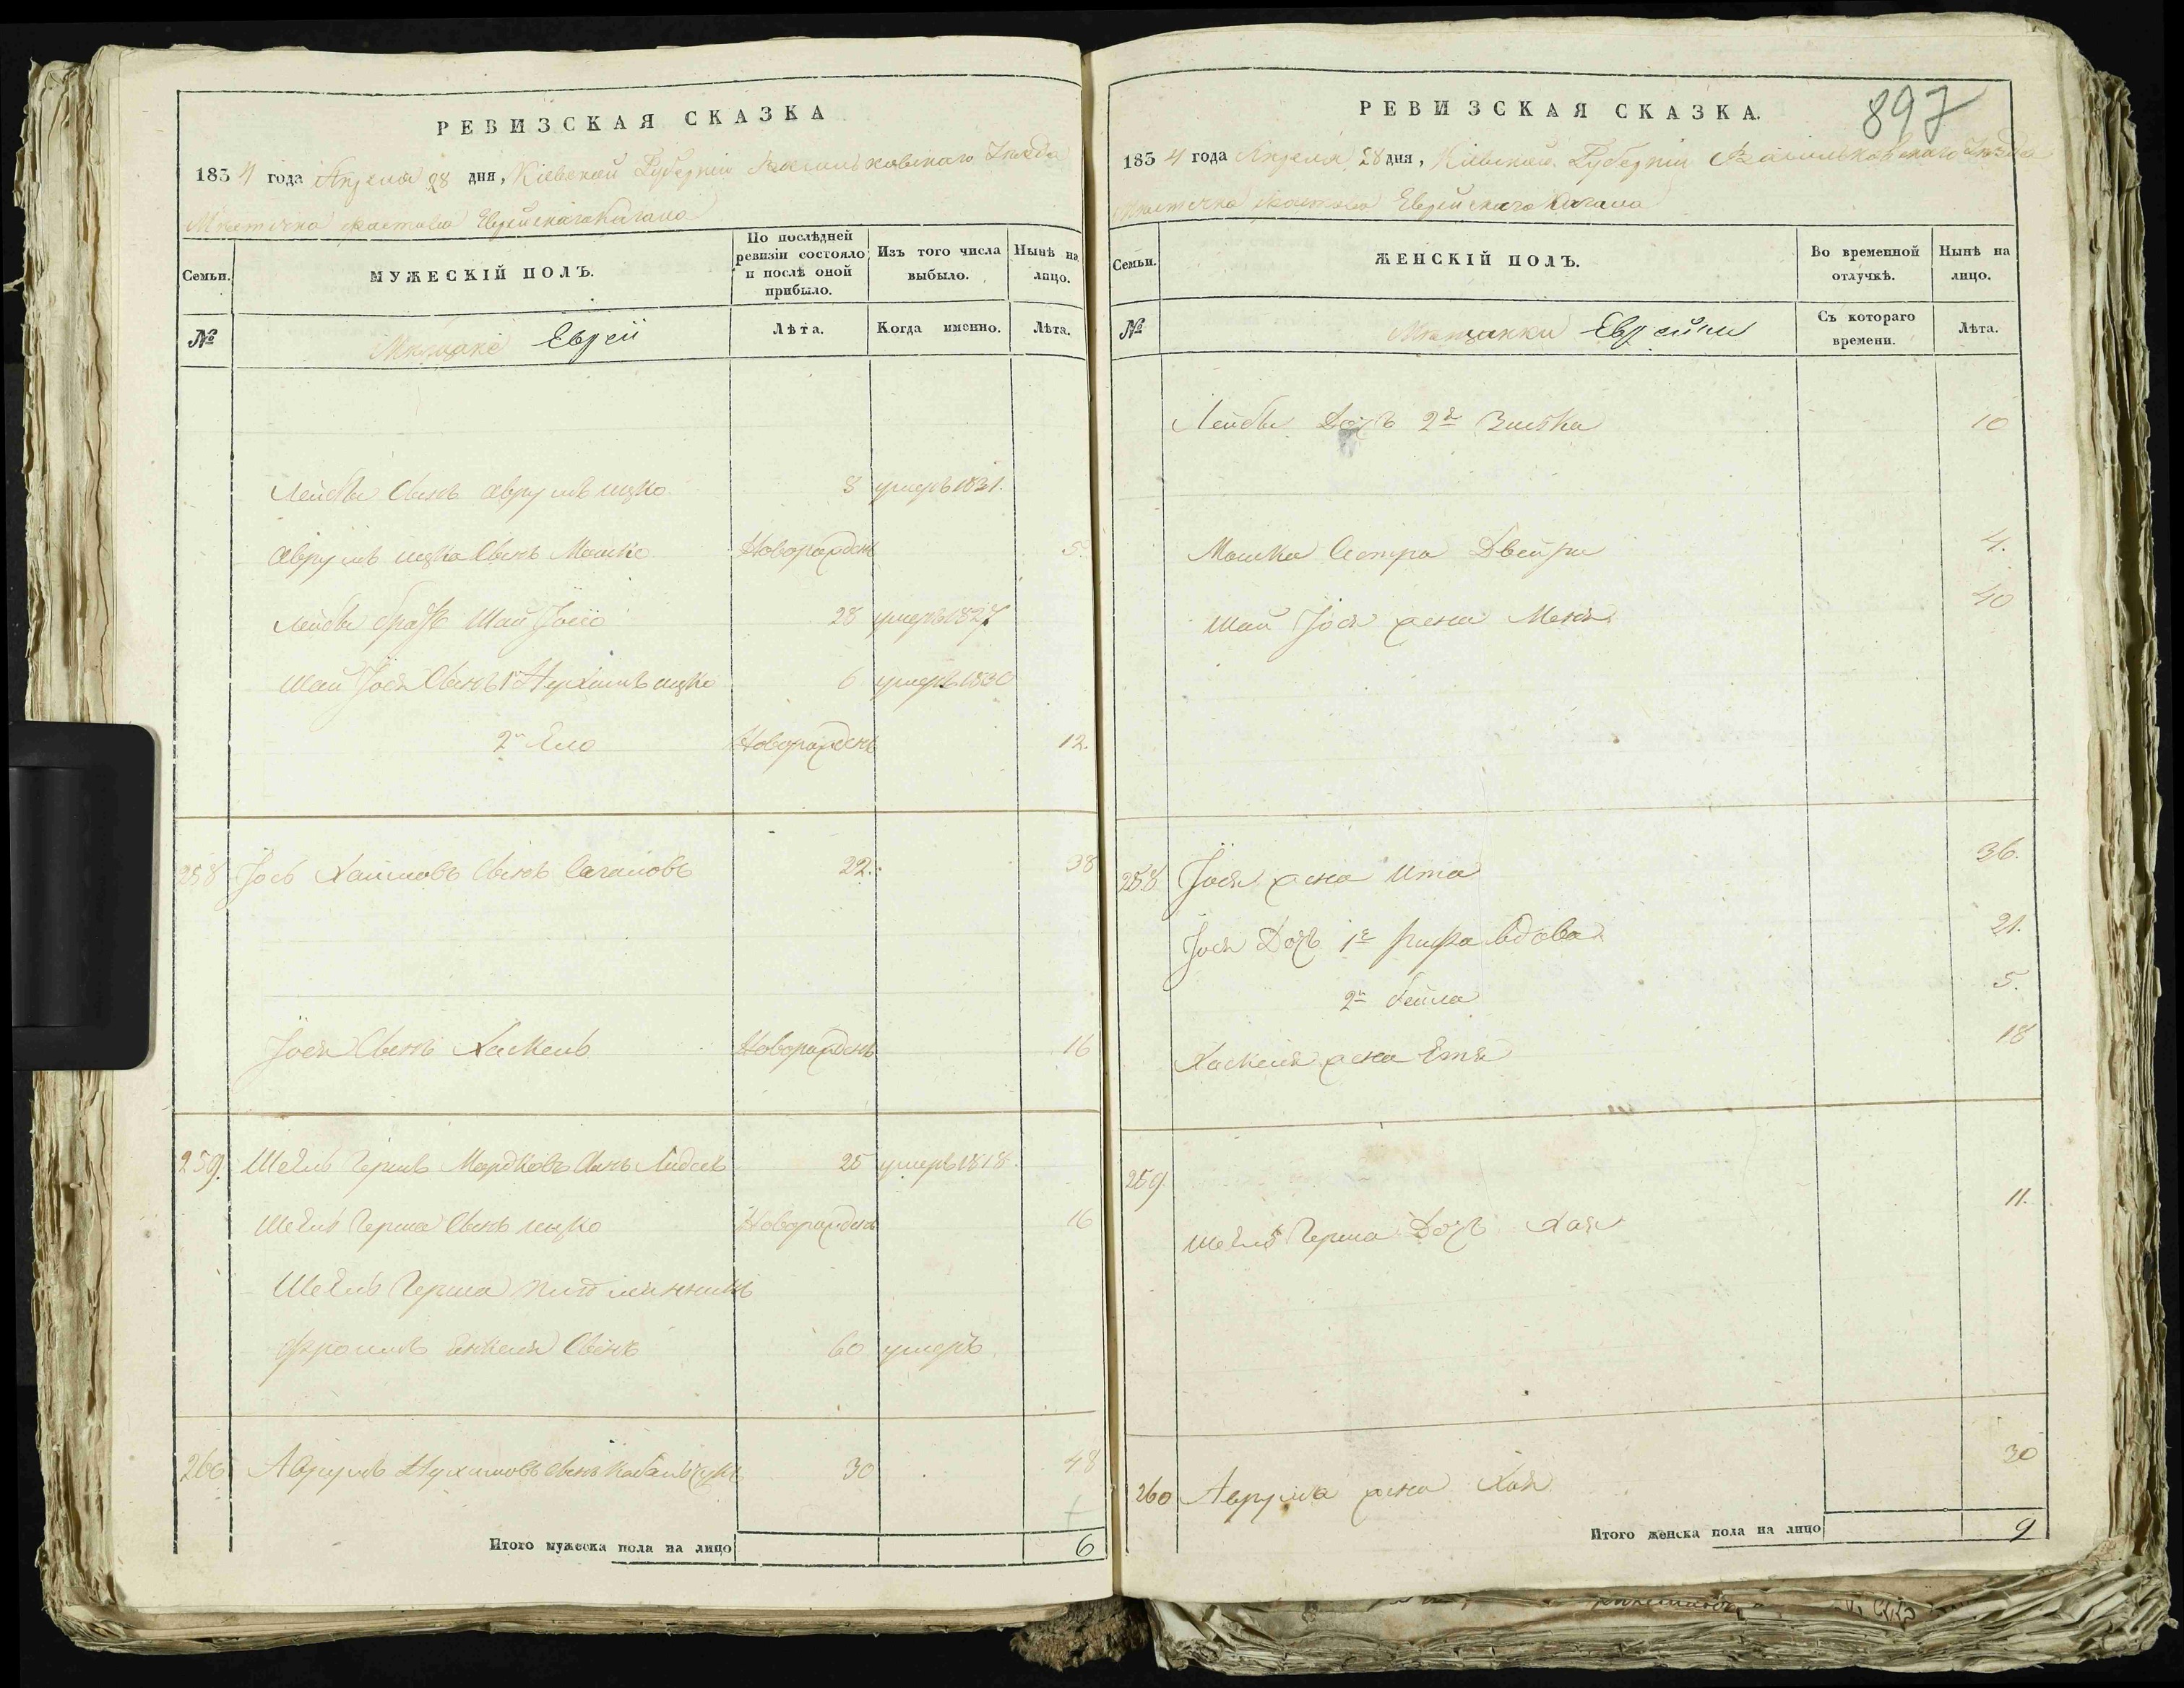 РЕВИЗСКАЯ СКАЗКА
1834 года Апреля 28 дня, Кіевской Губерніи Васильковскаго Уезда
Местечка Фастова Еврейскаго Кагала
Семьи.
МУЖЕСКІЙ ПОЛЪ.
По послѣдней ревизіи состояло и послѣ оной прибыло.
Изъ того числа выбыло.
Нынѣ на лицо.
№
Мещане Евреи
Лѣта.
Когда именно.
Лѣта.
Лейбы Сынъ Аврумъ ицко 8 умеръ 1831.
Аврумъ ицка Сынъ Мошко Новорожденъ 5.
Лейбы братъ Шай Іосіо 28 умеръ 1827
Шай Іося Сынъ 1й Нухимъ ицко 6 умеръ 1830
2й Ело Новорожденъ 12.
258 Іось Хаимовъ Сынъ Сагаловъ 22. 38
Іося Сынъ Хаскель Новорожденъ 16
259. Шевель Гершъ Мордковъ Сынъ 25 умеръ 1818.
Шевель Герша Сынъ ицко Новорожденъ 16
Шевель Герша
Фроимъ Янкеля Сынъ 60 умеръ
260 Аврумъ Нухимовъ Сынъ 30 48
Итого мужеска пола на лицо 6
РЕВИЗСКАЯ СКАЗКА.
897
1834 года Апреля 28 дня, Кіевской Губерніи Васильковскаго Уезда
Местечка Фастова Еврейскаго Кагала
Семьи.
ЖЕНСКІЙ ПОЛЪ.
Во временной отлучкѣ.
Нынѣ на лицо.
№
Мещанки Еврейки
Съ котораго времени.
Лѣта.
Лейбы Дочь 2я Зисъка 10
Мошка Сестра Двейра 4.
Шай Іося жена Меня 40
258 Іося жена Ита 36.
Іося Дочь 1я Рифа вдова 21.
2я Бейла 5.
Хаскеля жена Етя 18
259.
Шевель Герша Дочь Хая 11.
260 Аврума жена Хая 30
Итого женска пола на лицо 9